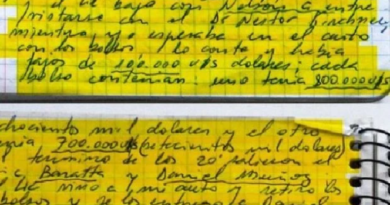 y el bajo con Nelson a entre
vistarse con el Dr Nestor Kirchner
mientras yo esperaba en el auto
con los bolsos / Lo conto y habia
fajos de 100.000 u$s dolares; cada
bolso contenian uno tenia 800.000 u$s
ochocientos mil dolares y el otro
tenia 700.000 u$s (setecientos mil dolares)
termino de los 20' salieron el
Baratta y Daniel Muñoz
vino a mi auto y retiro los
bolsos y se los entrego a Daniel